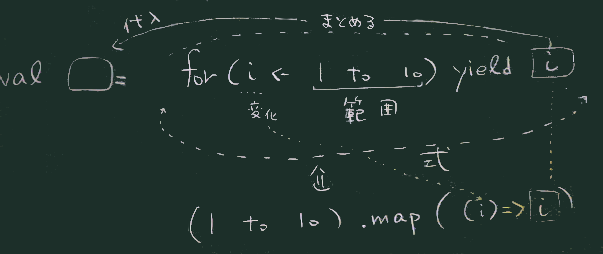 代入 まとめる
val = for (i <- 1 to 10) yield i
変化 範囲
式
(1 to 10).map((i)=>i)